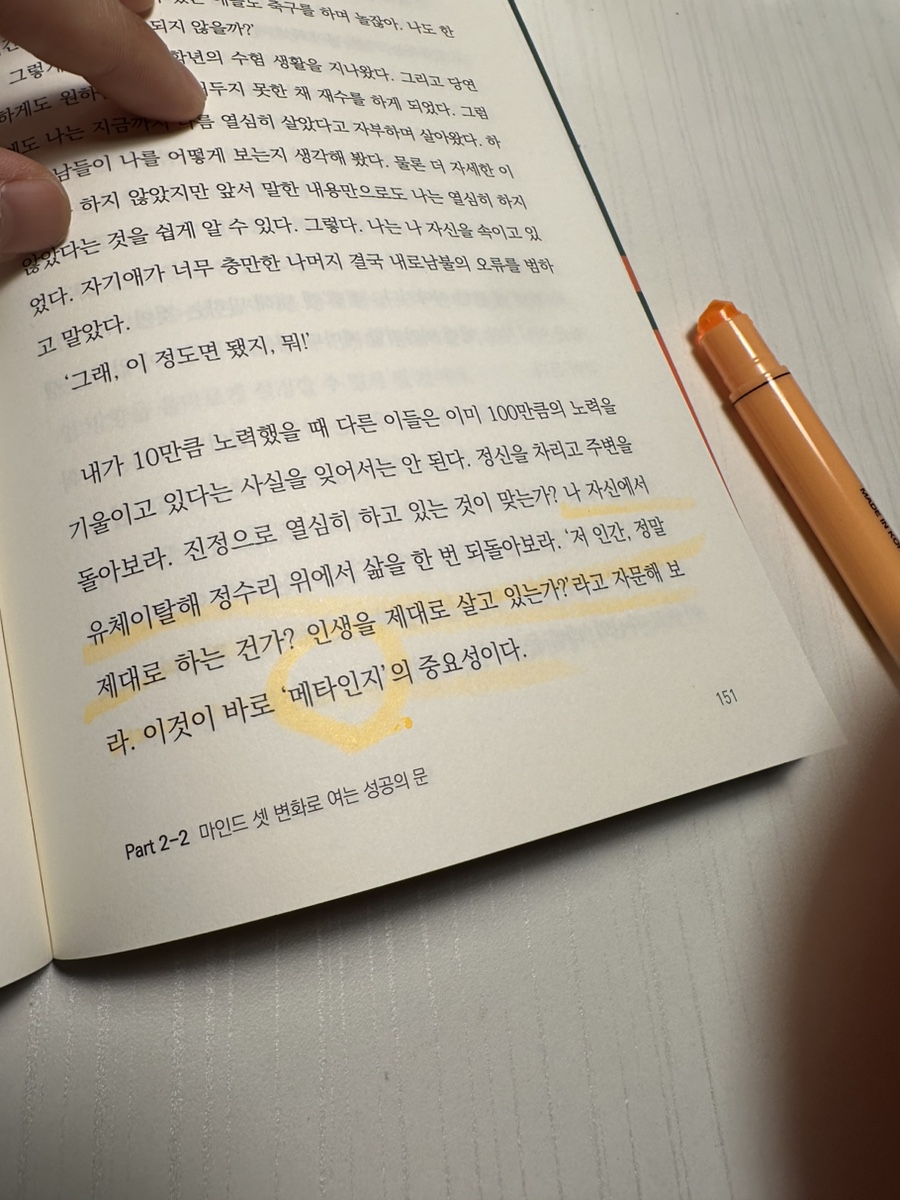 축구를 하며 놀잖아. 나도 한
되지 않을까?'
그렇게 학년의 수험 생활을 지나왔다. 그리고 당연
하게도 못한 채 재수를 하게 되었다. 그럼
에도 나는 지금까지 나름 열심히 살았다고 자부하며 살아왔다. 하
남들이 나를 어떻게 보는지 생각해 봤다. 물론 더 자세한 이
하지 않았지만 앞서 말한 내용만으로도 나는 열심히 하지
않았다는 것을 쉽게 알 수 있다. 그렇다. 나는 나 자신을 속이고 있
었다. 자기애가 너무 충만한 나머지 결국 내로남불의 오류를 범하
고 말았다.
'그래, 이 정도면 됐지, 뭐!'
내가 10만큼 노력했을 때 다른 이들은 이미 100만큼의 노력을
기울이고 있다는 사실을 잊어서는 안 된다. 정신을 차리고 주변을
돌아보라. 진정으로 열심히 하고 있는 것이 맞는가? 나 자신에서
유체이탈해 정수리 위에서 삶을 한 번 되돌아보라. '저 인간, 정말
제대로 하는 건가? 인생을 제대로 살고 있는가?'라고 자문해 보
라. 이것이 바로 '메타인지'의 중요성이다.
151
Part 2-2 마인드 셋 변화로 여는 성공의 문
MADE IN